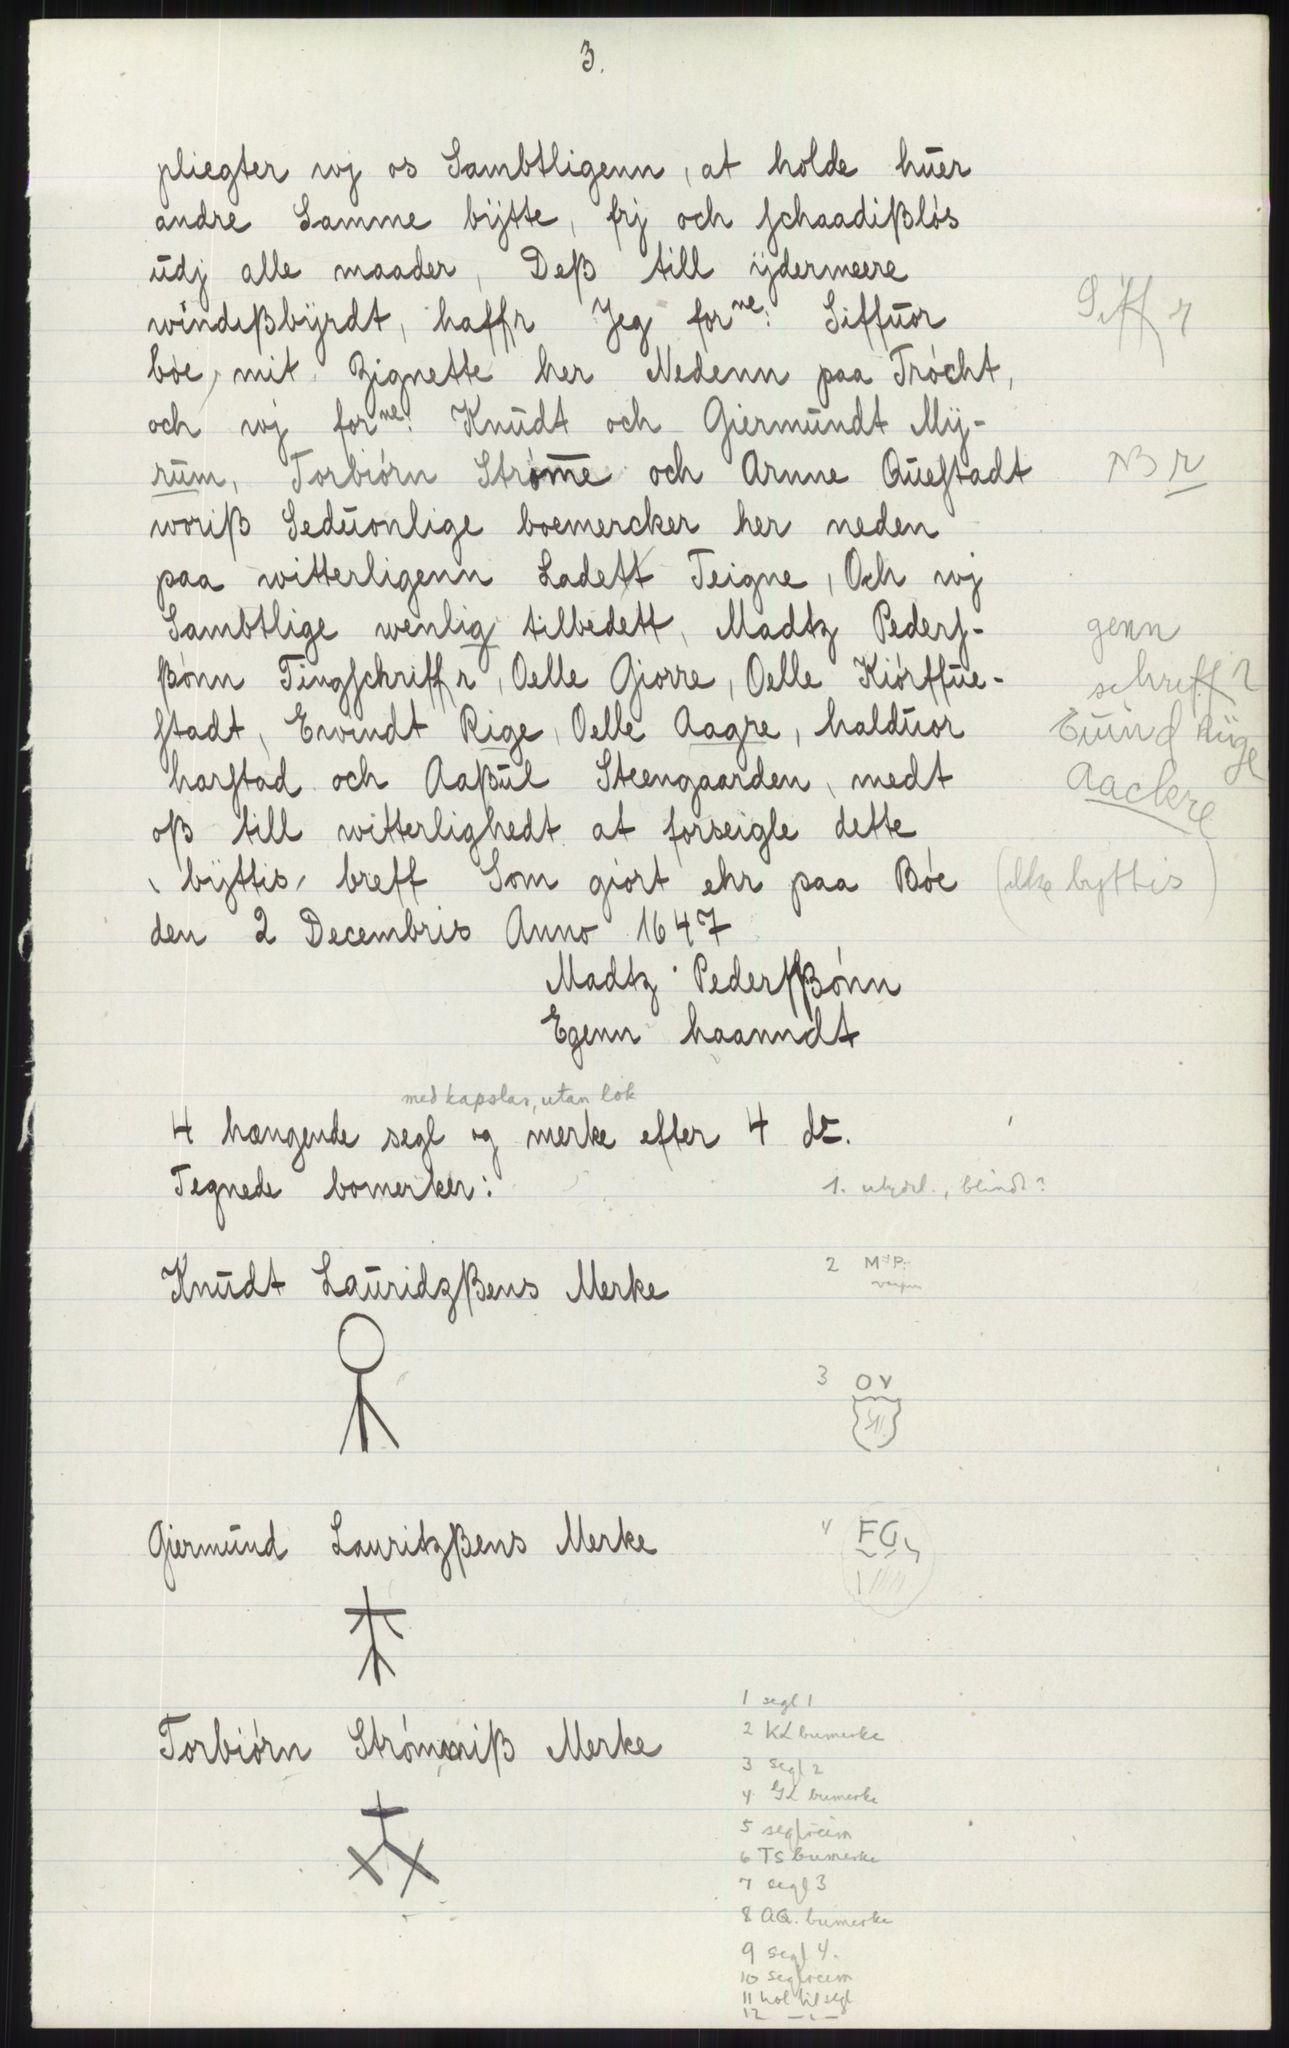 3.
pliegter wj os Sambtligenn, at holde huer
andre Samme bÿtte, frj och schaadißløs
udj alle maader, Deß till ÿdermeere
windißbÿrdt, haffr Jeg forne: Siffuor
Siff r
bøe, mit Zignette her Nedenn paa Trøcht,
och wj forne: Knudt och Giermundt Mÿ-
rum, Torbiørn Strøme och Arnne Questadt
NB r
woriß Seduonlige boemercker her neden
paa witterligenn Ladett Teigne, Och wj
Sambtlige wenlig tilbedett, Madtz Peders-
genn
ßønn Tingschriffr, Oelle Giorre, Oelle Kiørffue-
schreff r
stadt, Ewindt Rige, Oelle Aagre, halduor
Euind Rüge
harstad och Aaßul Steengaarden, medt
Aackre
oß till witterlighedt at forseigle dette
bÿttis, breff Som giort ehr paa Bøe
(ikke byttis)
den 2 Decembris Anno 1647
Madtz Pederssßønn
Egenn haanndt
med kapslar, utan lok
4 hængende segl og merke efter 4 do.
Tegnede bomerker:
1. utydel., blindt?
Knudt Lauridzßens Merke
2 M P
3 OV
Giermund Lauritzßens Merke
4 FG
1 segl 1
Torbiørn Strømmiß Merke
2 KL bumerke
3 segl 2
4 GL bumerke
5 seglreim
6 TS bumerke
7 segl 3
8 AQ. bumerke
9 segl 4.
10 seglreim
11 hol til segl
12 —"—